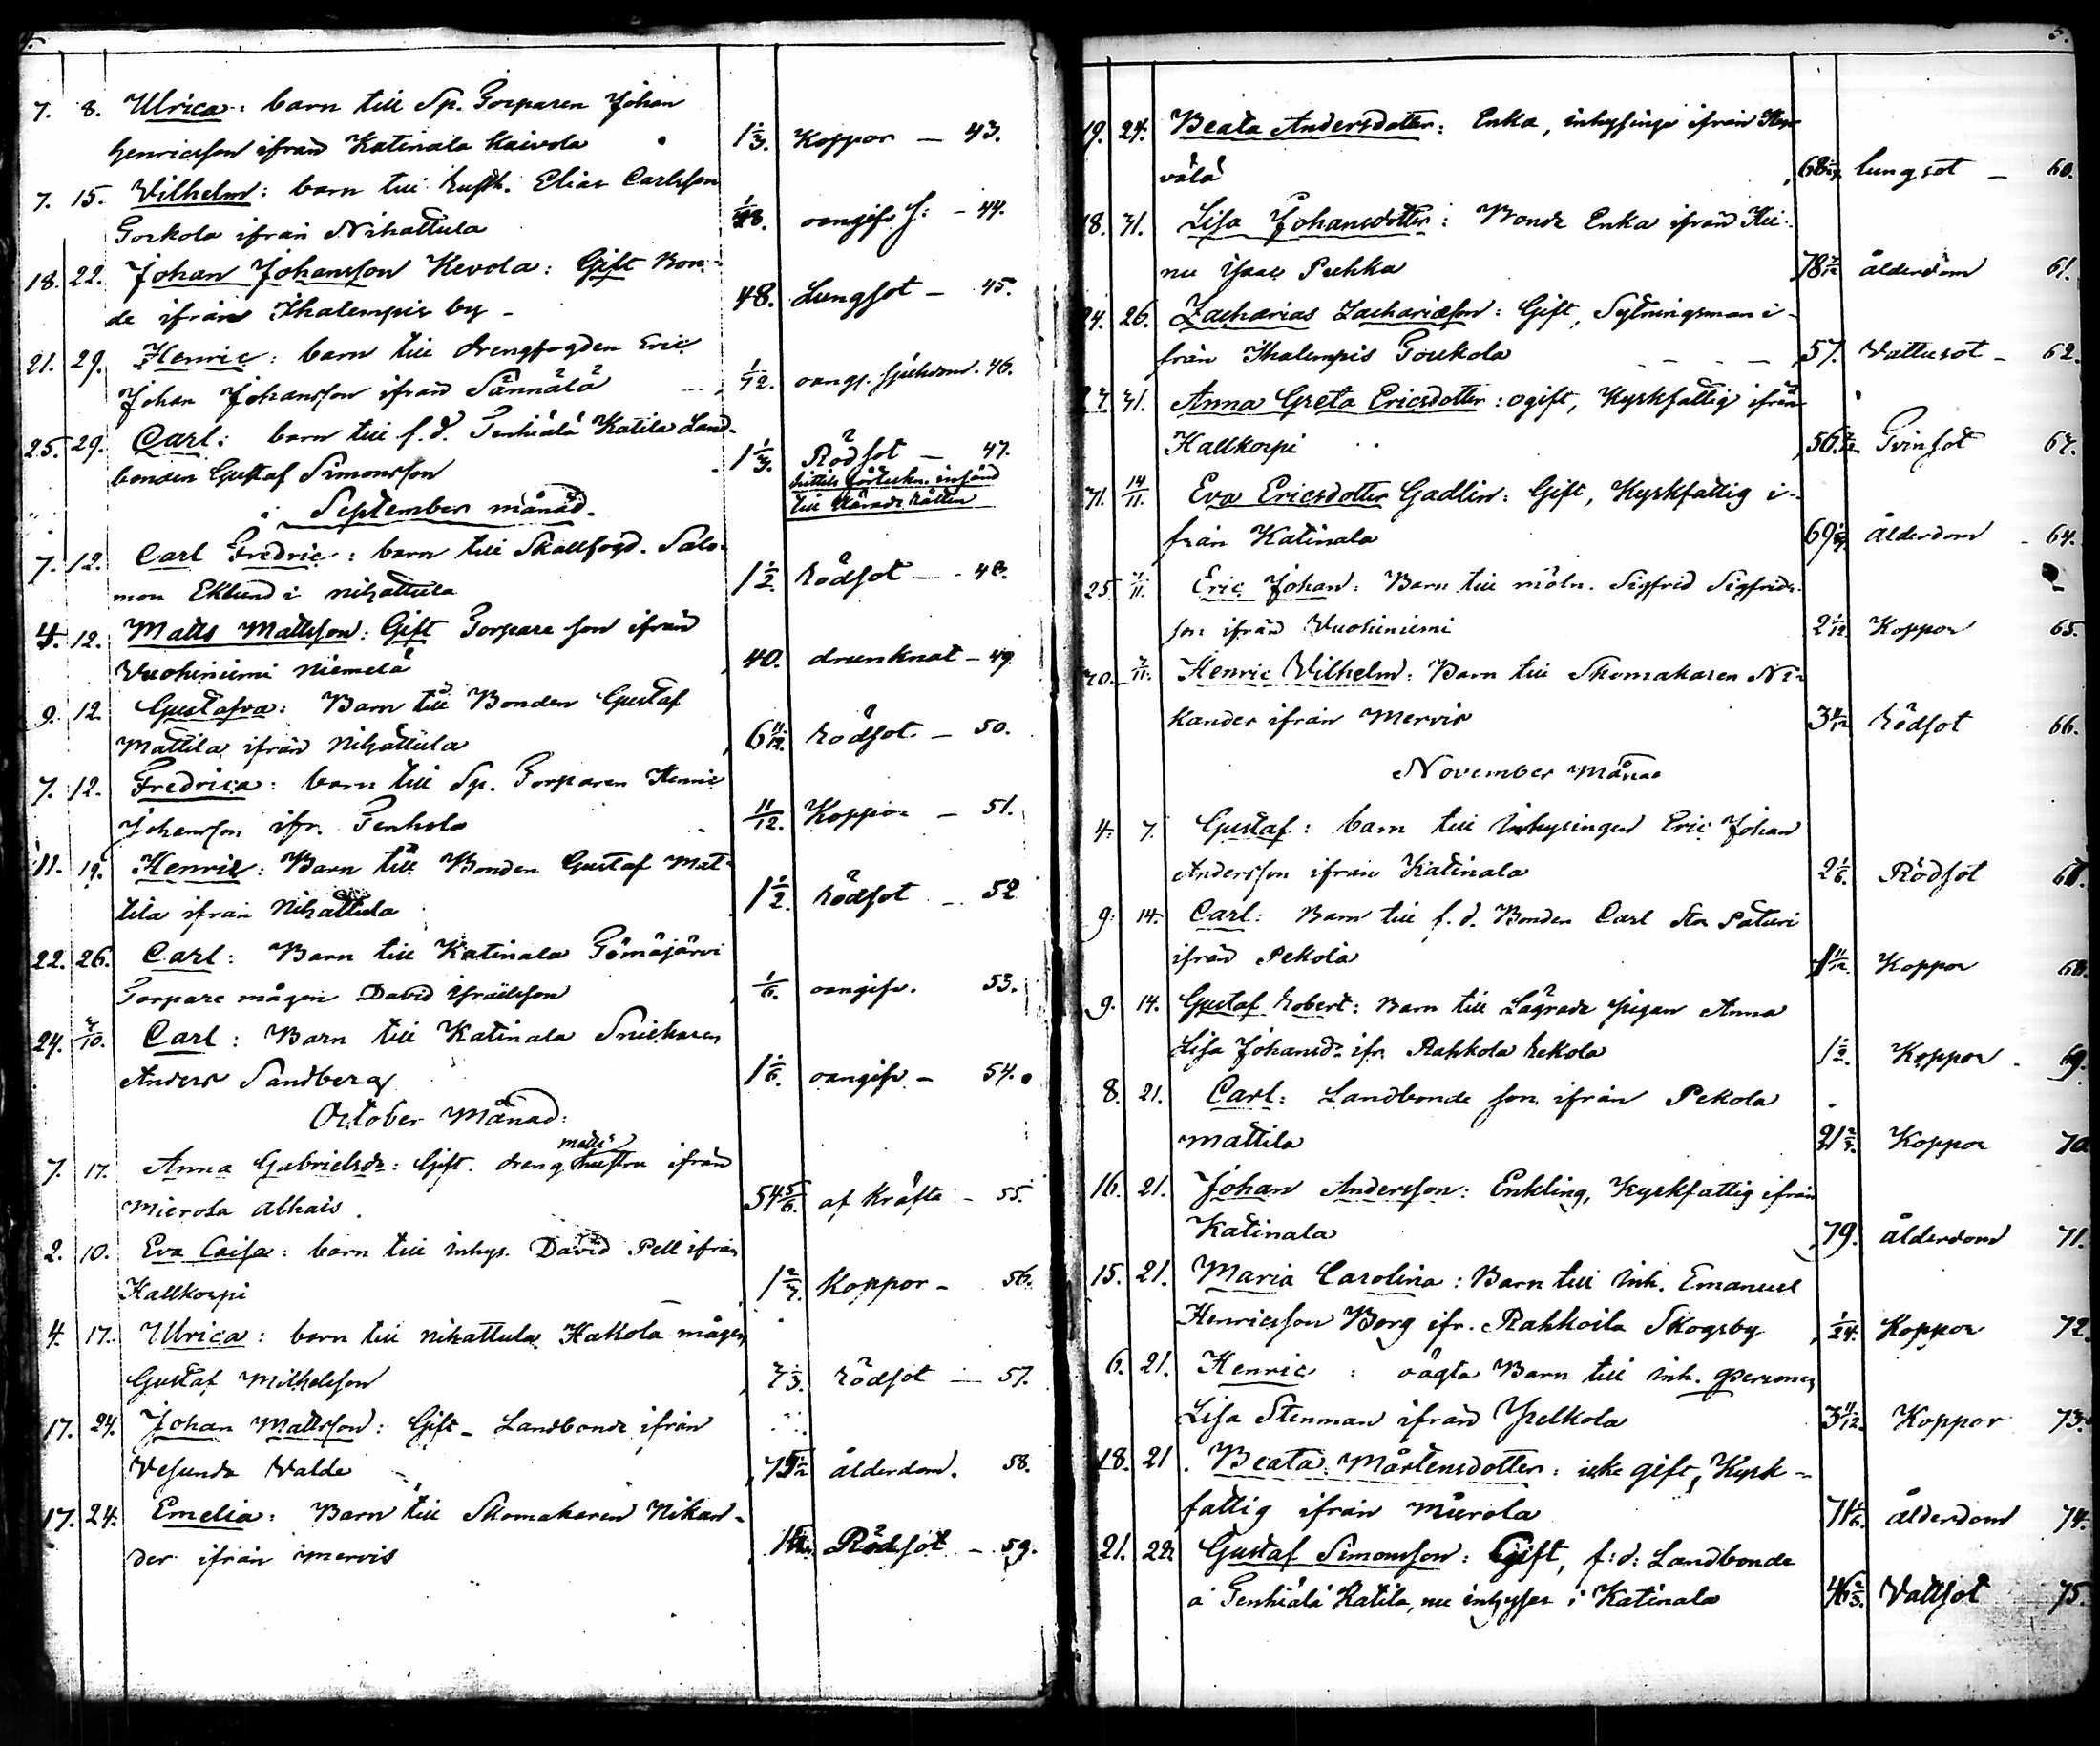 4.
7. 8. Ulrica: barn till Sp. Torparen Johan
Henricsson ifrån Katinala Kaivola 1 1/3. Koppor — 43.
7. 15. Vilhelm: barn till Rusth. Elias Carlsson
Torkola ifrån Nihattula oangifv. s: - 44.
18. 22. Johan Johansson Kevola: Gift Bon-
de ifrån Ihalempis by - 48. Lungsot - 45.
21. 29. Henric: barn till drengfogden Eric
Johan Johansson ifrån Sännälä 1/12. oang. sjukdom. 46.
25. 29. Carl: barn till f. d. Tenhiälä Katila Land-
bonden Gustaf Simonsson 1 1/3. Rödsot — 47.
hittils förteckn. insänd
till Härads Rätten
i September månad.
7. 12. Carl Fredric: barn till Skallfogd. Salo-
mon Eklund i Nihattula 1 1/2. Rödsot — 48.
4. 12. Matts Mattsson: Gift Torpare son ifrån
Vuohiniemi Niemelä 40. drunknat - 49
9. 12. Gustafva: Barn till Bonden Gustaf
Mattila ifrån Nihattula 6 11/12. Rödsot. — 50.
7. 12. Fredrica: barn till Sp. Torparen Henric
Johansson ifr. Tenhola 11/12. Koppor — 51.
11. 19. Henric: Barn till Bonden Gustaf Mat-
tila ifrån Nihattula 1 1/2. Rödsot — 52
22. 26. Carl: Barn till Katinala Tömäjärvi
Torpare mågen David Israelsson 1/6. oangifv. 53.
24. 3/10. Carl: Barn till Katinala Snickaren
Anders Sandberg 1 1/6. oangifv - 54.
October Månad:
7. 17. Anna Gabrielsdr: Gift. dreng hustru ifrån
Mierola Alhais. 54 5/6. af Kräfta - 55.
2. 10. Eva Caisa: barn till inhys. David Pell ifrån
Hallkorpi 1 2/3. Koppor - 56.
4. 17. Ulrica: barn till Nihattula Hakola mågen
Gustaf Michelsson Rödsot — 57.
17. 24. Johan Mattsson: Gift - Landbonde ifrån
Vesunda Valde ålderdom. 58.
17. 24. Emelia: Barn till Skomakaren Nikan-
der ifrån Mervis Rödsot — 59.
5.
19. 24. Beata Andersdotter: Enka, inhysinge ifrån
välä lungsot — 60.
18. 31. Lisa Johansdotter: Bonde Enka ifrån
Puhka ålderdom 61.
24. 26. Zacharias Zachariæson: Gift, Sytningsman i-
från Ihalempis Toukola 57. Vattusot - 62.
31. Anna Greta Ericsdotter: ogift, Kyrkfattig ifrån
Hallkorpi Tvinsot 63.
31. 14/11. Eva Ericsdotter Gadlin: Gift, Kyrkfattig i-
från Katinala ålderdom - 64.
25. Eric Johan: Barn till möln. Sigfrid Sigfrids-
son ifrån Vuohiniemi 2 1/12 Koppor 65.
30. Henric Vilhelm: Barn till Skomakaren Ni-
kander ifrån Mervis Rödsot 66.
November Månad
4. 7. Gustaf: barn till Inhysingen Eric Johan
Andersson ifrån Katinala 2 1/6. Rödsot 67.
9. 14. Carl: Barn till f. d. Bonden Carl Sta Paturi
ifrån Pekola Koppor 68.
9. 14. Gustaf Robert: Barn till Lägrade pigan Anna
Lisa Johansdr ifr. Rahkola Rekola 1 1/2. Koppor. 69.
8. 21. Carl: Landbonde son ifrån Pekola
Mattila 21 2/3. Koppor 70
16. 21. Johan Andersson: Enkling, Kyrkfattig ifrån
Katinala 79. ålderdom 71.
15. 21. Maria Carolina: Barn till Inh. Emanuel
Henricsson Borg ifr. Rahkoila Skogsby 1/24. Koppor 72.
6. 21. Henric: oägta Barn till inh. qpersonen
Lisa Stenman ifrån Yrelkola 3 11/12. Koppor 73.
18. 21. Beata Mårtensdotter: icke gift, Kyrk-
fattig ifrån Mierola 71 1/6. ålderdom 74.
21. 22. Gustaf Simonsson: Gift, f: d: Landbonde
å Tenhiälä Katila, nu inhyses i Katinala 46 2/3. Vattsot 75.